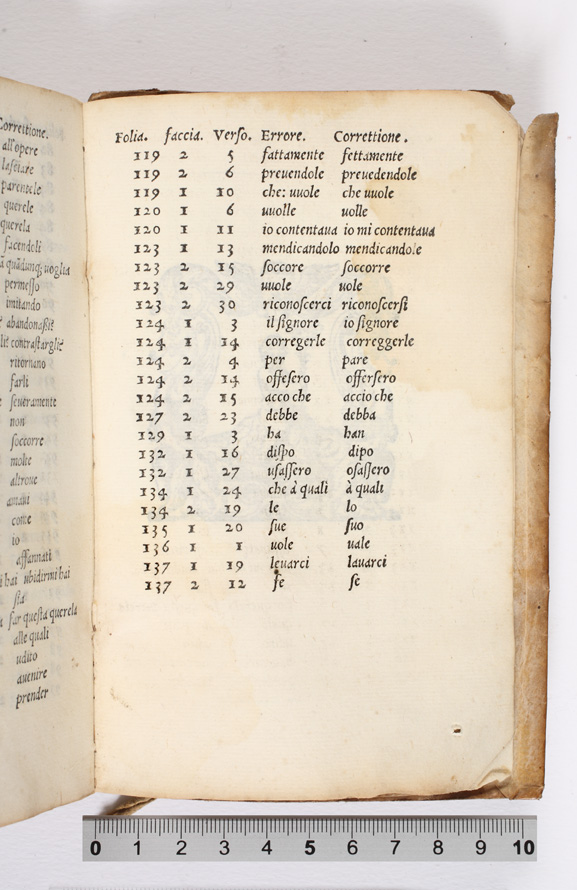 Correttione.
all'opere
lasciare
parentele
querele
querela
facendoli
permesso
imitando
abandonassiẽ
contrastargliẽ
ritornano
farli
seueramente
non
soccorre
molte
altroue
amaui
come
io
affannati
hai ubidirmi hai
sta
far questa querela
alle quali
udito
auenire
prender
Folia. faccia. Verso. Errore. Correttione.
119 2 5 fattamente fettamente
119 2 6 preuendole preuedendole
119 1 10 che: uuole che uuole
120 1 6 uuolle uolle
120 1 11 io contentaua io mi contentaua
123 1 13 mendicandolo mendicandole
123 2 15 soccore soccorre
123 2 29 uuole uole
123 2 30 riconoscerci riconoscersi
124 1 3 il signore io signore
124 1 14 corregerle correggerle
124 2 4 per pare
124 2 14 offesero offersero
124 2 15 acco che accio che
127 2 23 debbe debba
129 1 3 ha han
132 1 16 dispo dipo
132 1 27 usassero osassero
134 1 24 che à quali à quali
134 2 19 le lo
135 1 20 sue suo
136 1 1 uole uale
137 1 19 leuarci lauarci
137 2 12 fe se
0 1 2 3 4 5 6 7 8 9 10